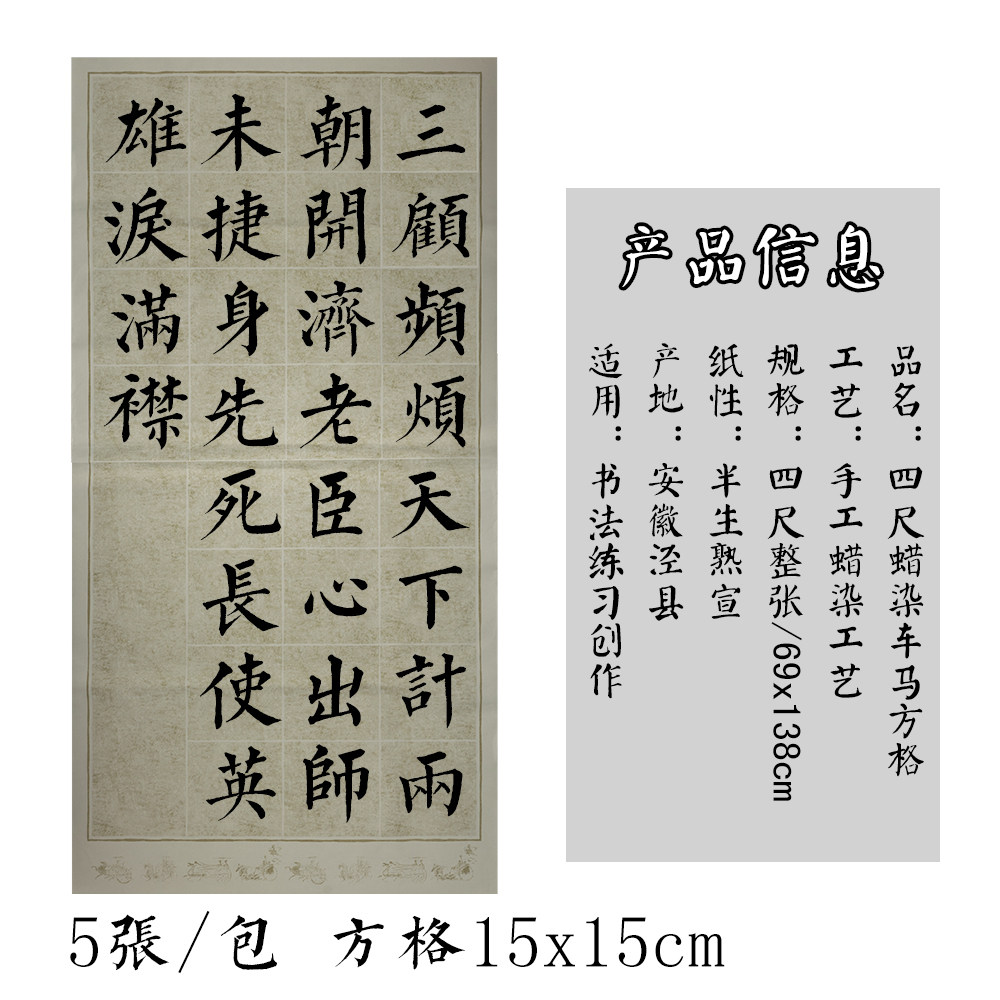 三顧頻煩天下計兩
朝開濟老臣心出師
未捷身先死長使英
雄淚滿襟
产品信息
品名：四尺蜡染车马方格
工艺：手工蜡染工艺
规格：四尺整张/69x138cm
纸性：半生熟宣
产地：安徽泾县
适用：书法练习创作
5張/包 方格15x15cm